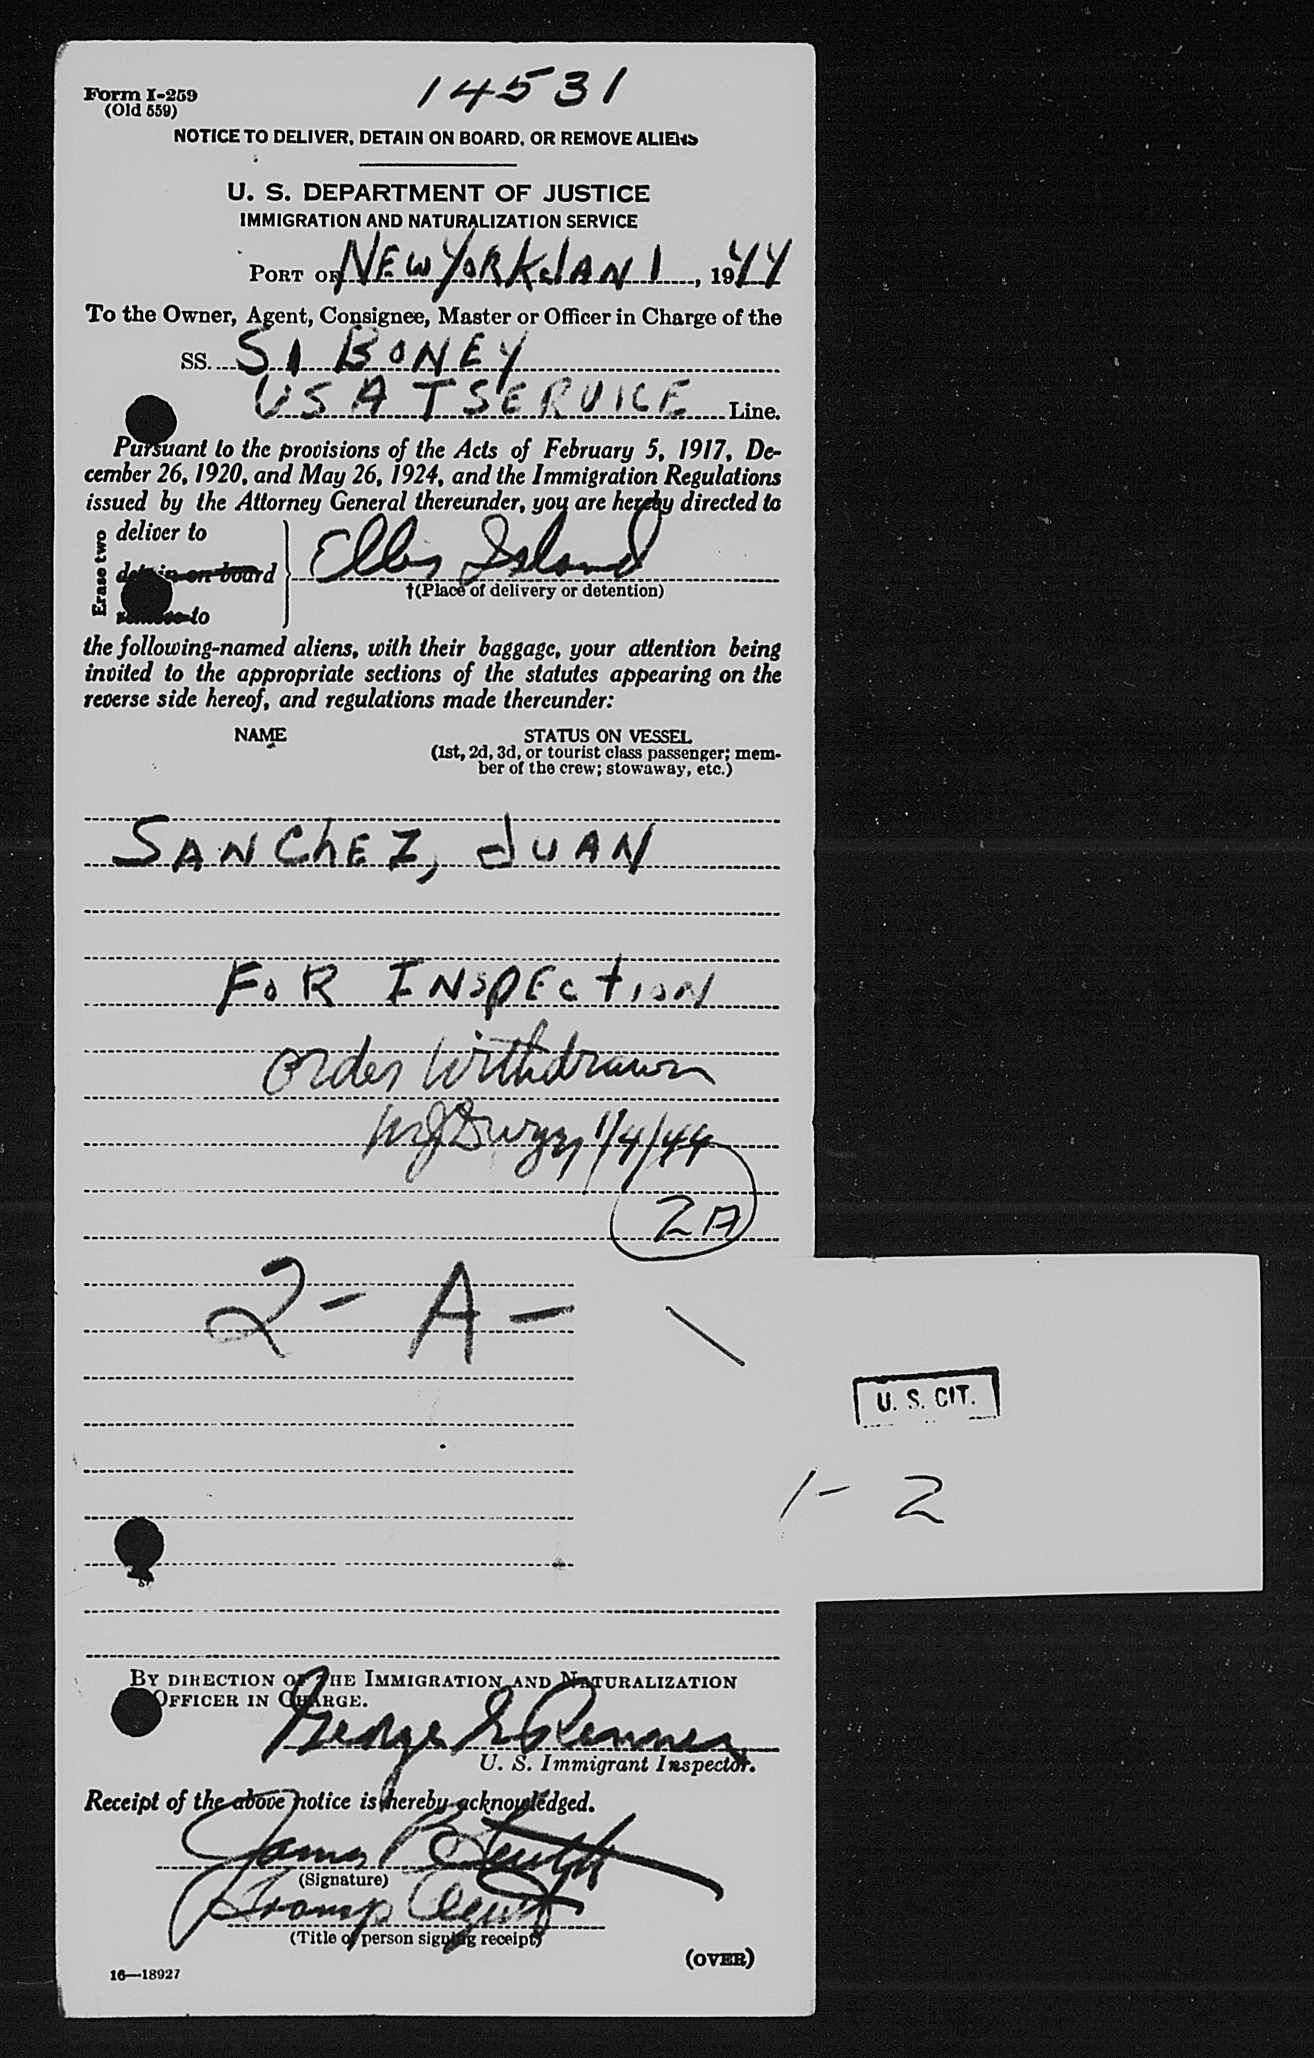 14531
Form I-259
(Old 559)
NOTICE TO DELIVER, DETAIN ON BOARD, OR REMOVE ALIENS
U. S. DEPARTMENT OF JUSTICE
IMMIGRATION AND NATURALIZATION SERVICE
PORT OF NEW YORK JAN 1, 1944
To the Owner, Agent, Consignee, Master or Officer in Charge of the
SS. SI BONEY
USAT SERVICE Line.
Pursuant to the provisions of the Acts of February 5, 1917, De-
cember 26, 1920, and May 26, 1924, and the Immigration Regulations
issued by the Attorney General thereunder, you are hereby directed to
Erase two
deliver to
detain on board
remove to
Ellis Island
†(Place of delivery or detention)
the following-named aliens, with their baggage, your attention being
invited to the appropriate sections of the statutes appearing on the
reverse side hereof, and regulations made thereunder:
NAME STATUS ON VESSEL
(1st, 2d, 3d, or tourist class passenger; mem-
ber of the crew; stowaway, etc.)
SANCHEZ, JUAN
FOR INSPECTION
Order Withdrawn
1/4/44
2A
2- A-
U. S. CIT.
1- 2
BY DIRECTION OF THE IMMIGRATION AND NATURALIZATION
OFFICER IN CHARGE.
George Renner
U. S. Immigrant Inspector.
Receipt of the above notice is hereby acknowledged.
James B
(Signature)
Transp Agent
(Title of person signing receipt)
(OVER)
16—18927